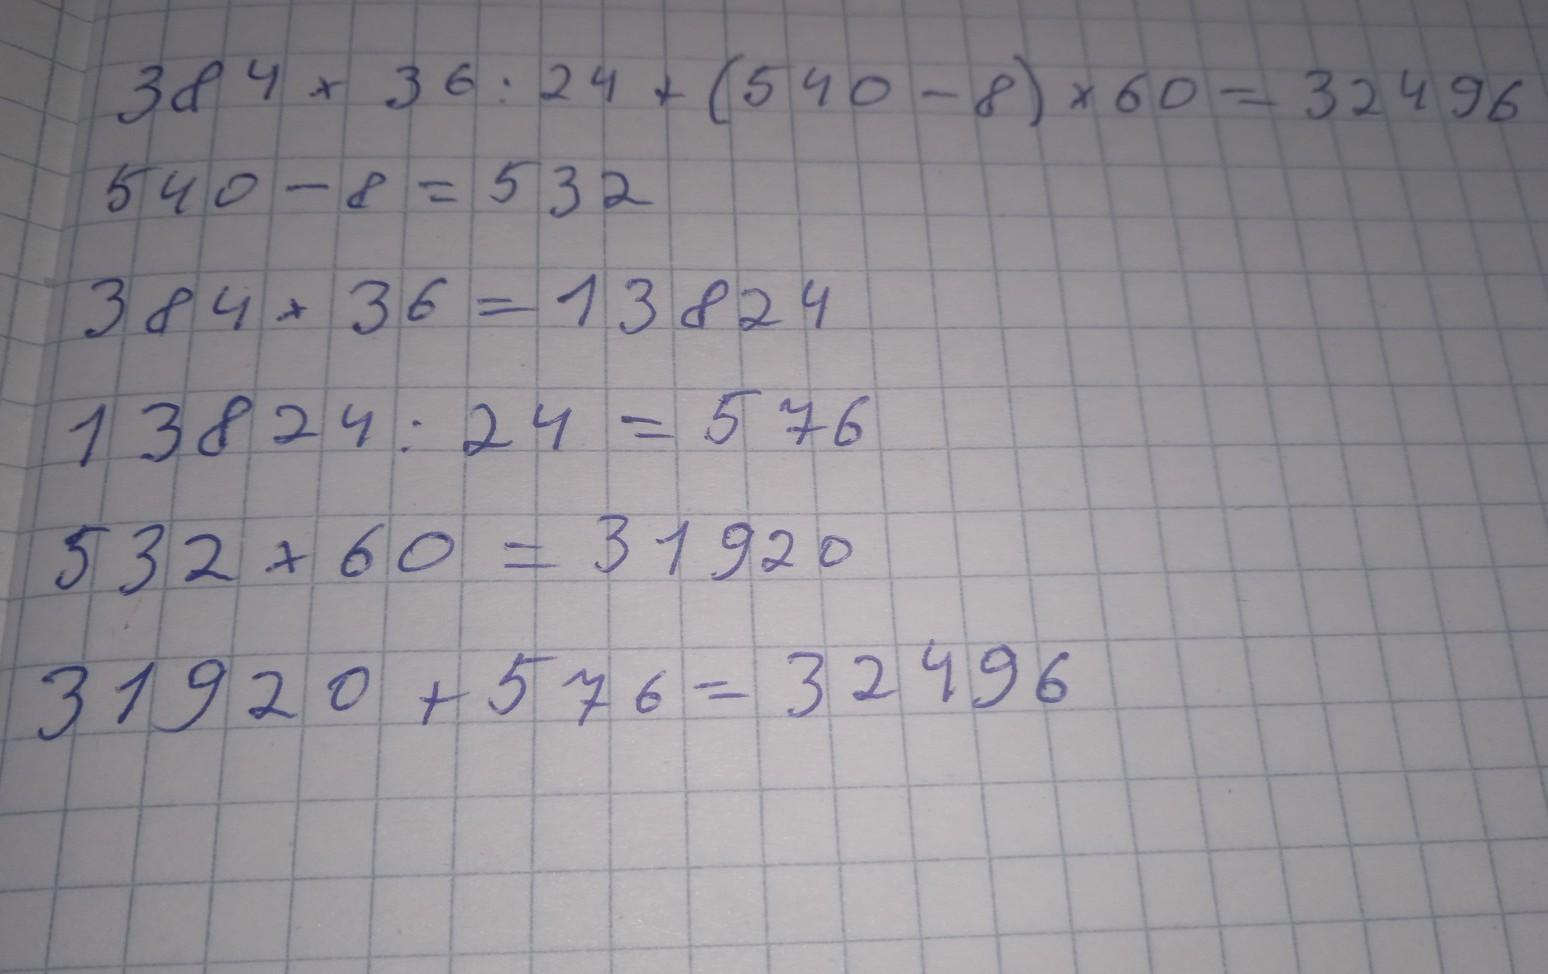 384 × 36 : 24 + (540 - 8) × 60 = 32496
540 - 8 = 532
384 × 36 = 13824
13824 : 24 = 576
532 × 60 = 31920
31920 + 576 = 32496